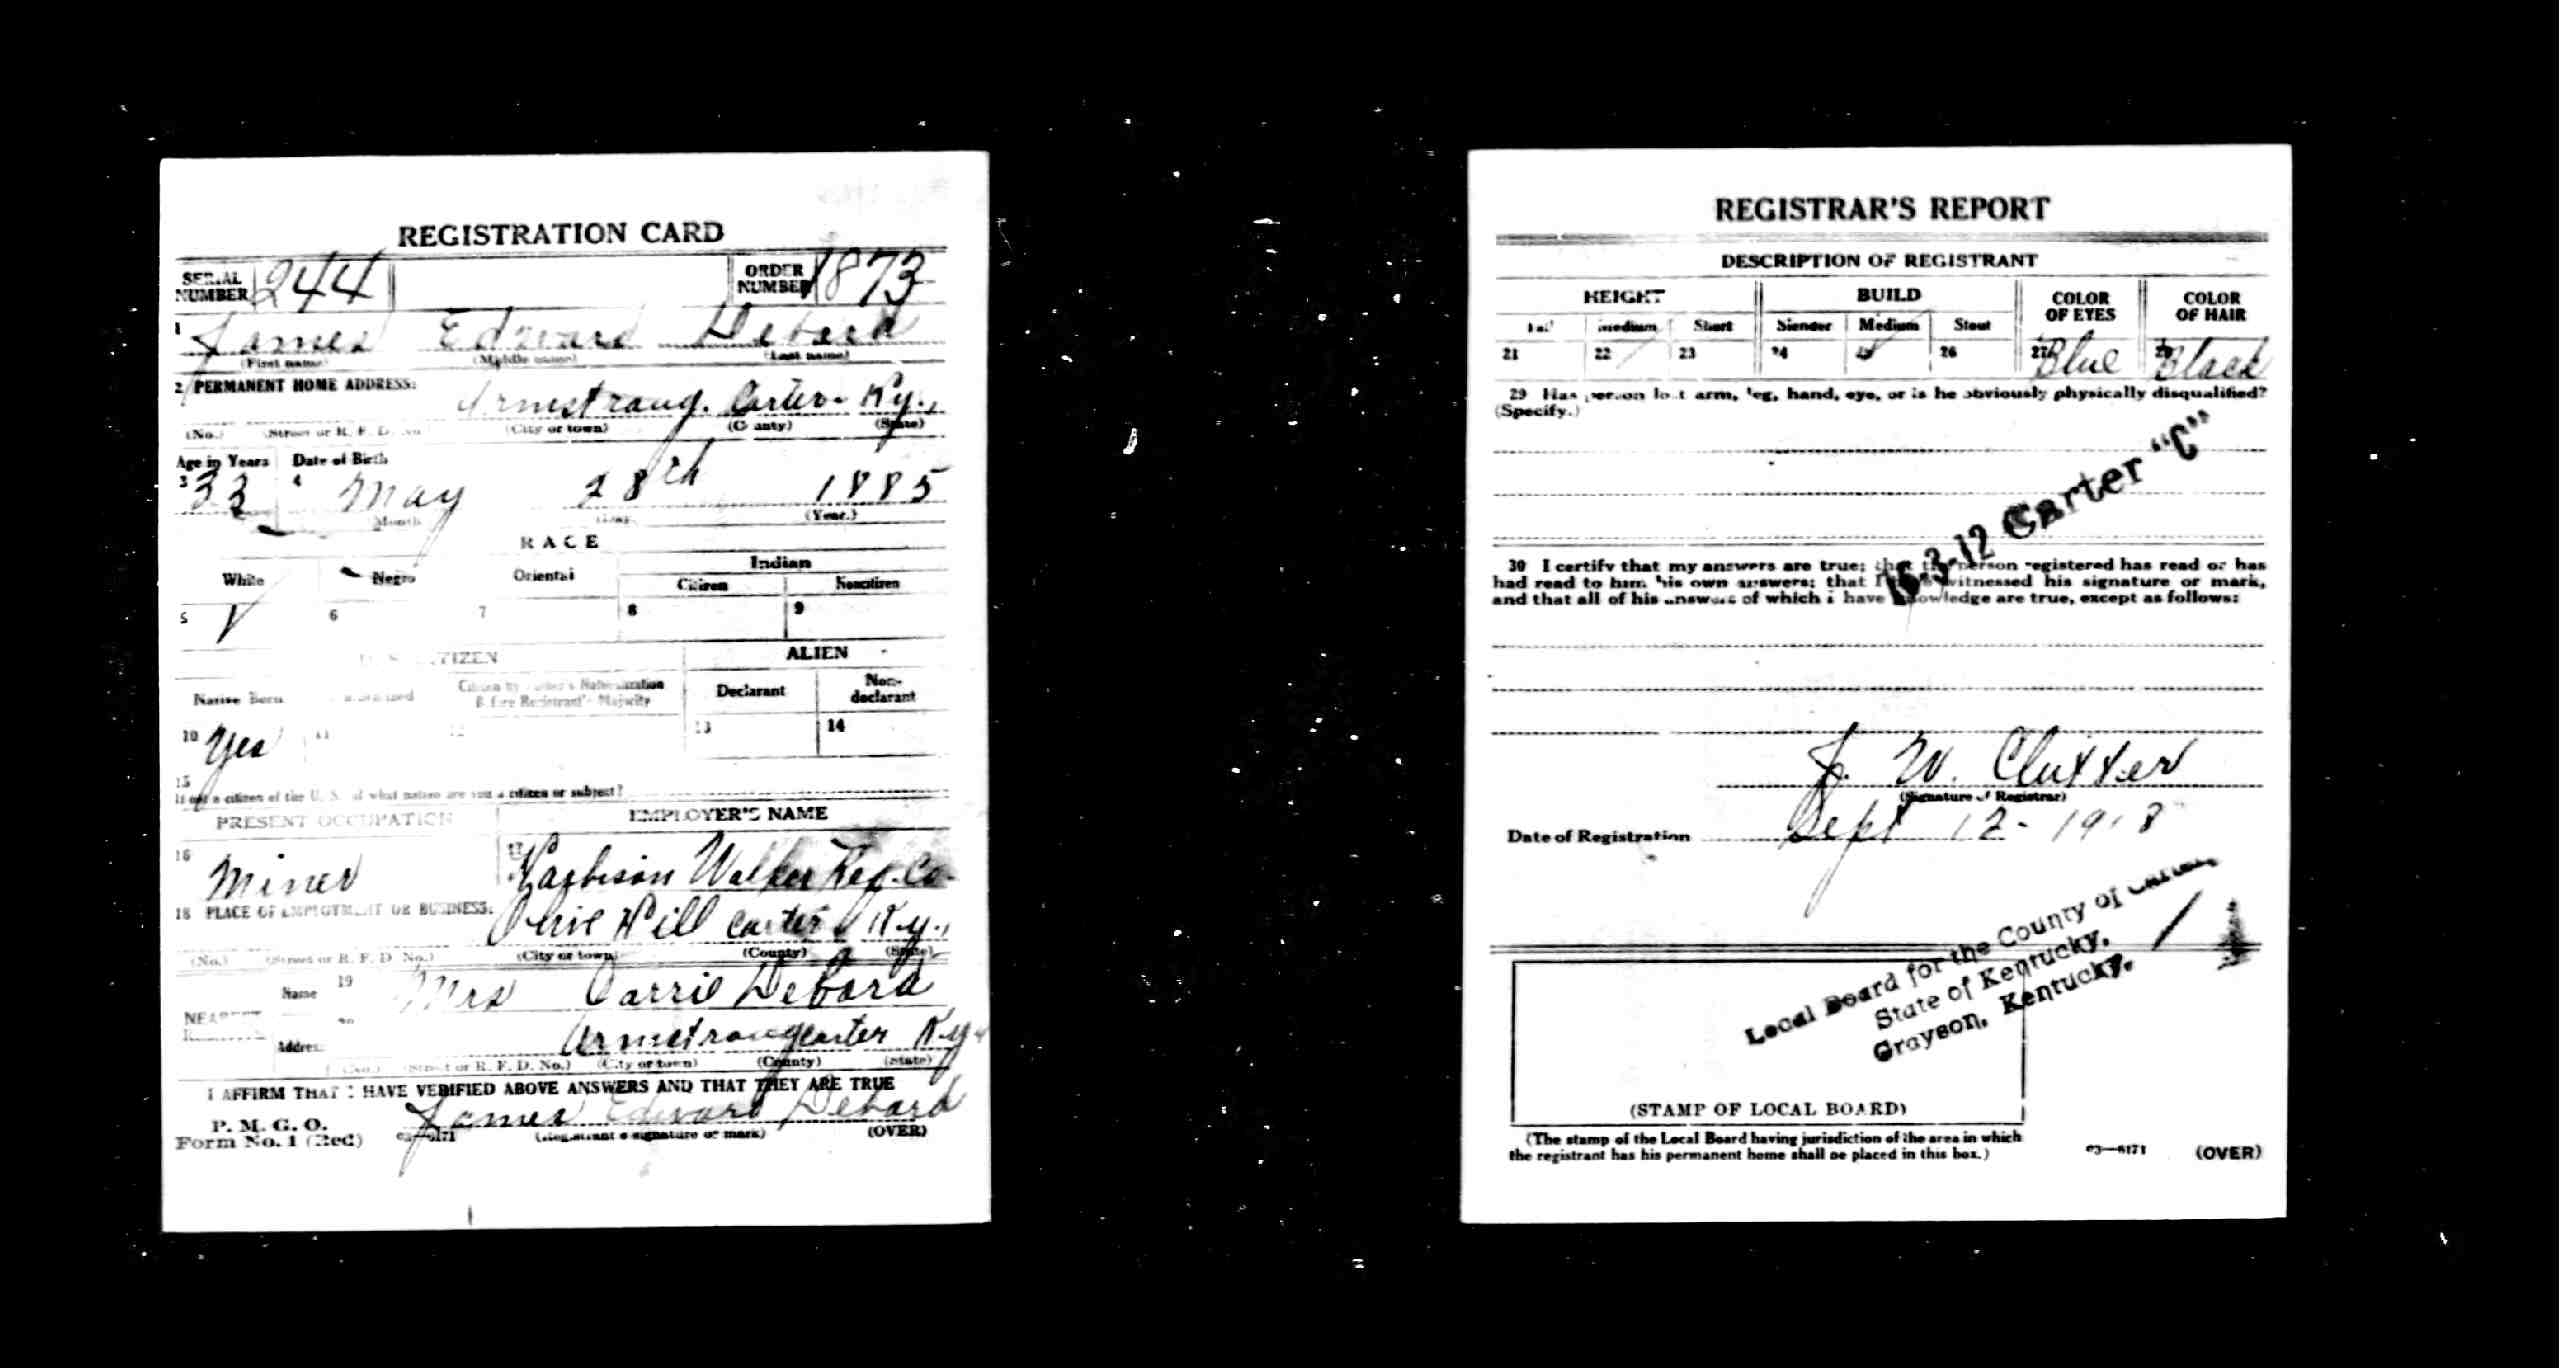 REGISTRATION CARD
SERIAL NUMBER 244
ORDER NUMBER 1873
1 James Edward Debord
(First name) (Middle name) (Last name)
2 PERMANENT HOME ADDRESS:
Armstrong. Carter Ky.,
(No.) (Street or R. F. D. No.) (City or town) (County) (State)
Age in Years Date of Birth
3 33 4 May 28th 1885
(Month) (Day.) (Year.)
RACE
White Negro Oriental Indian
Citizen Noncitizen
5 V 6 7 8 9
U. S. CITIZEN ALIEN
Native Born Naturalized Citizen by Father's Naturalization Before Registrant's Majority Declarant Non-declarant
10 Yes 11 12 13 14
15
If not a citizen of the U. S., of what nation are you a citizen or subject?
PRESENT OCCUPATION EMPLOYER'S NAME
16 Miner 17 Harbison Walker Ref. Co.
18 PLACE OF EMPLOYMENT OR BUSINESS:
Olive Hill Carter Ky.,
(No.) (Street or R. F. D. No.) (City or town) (County) (State)
NEAREST
Name 19 Mrs Carrie Debord
Address Armstrong Carter Ky.
(No.) (Street or R. F. D. No.) (City or town) (County) (State)
I AFFIRM THAT I HAVE VERIFIED ABOVE ANSWERS AND THAT THEY ARE TRUE
P. M. G. O.
Form No. 1 (Red) 03—6171 James Edward Debord
(Registrant's signature or mark) (OVER)
REGISTRAR'S REPORT
DESCRIPTION OF REGISTRANT
HEIGHT BUILD COLOR OF EYES COLOR OF HAIR
Tall Medium Short Slender Medium Stout
21 22 / 23 24 25 / 26 27 Blue 28 Black
29 Has person lost arm, leg, hand, eye, or is he obviously physically disqualified?
(Specify.)
16-3-12 Carter "C"
30 I certify that my answers are true; that the person registered has read or has
had read to him his own answers; that I have witnessed his signature or mark,
and that all of his answers of which I have knowledge are true, except as follows:
J. W. Clutter
(Signature of Registrar)
Date of Registration Sept 12- 1918
Local Board for the County of Carter,
State of Kentucky,
Grayson, Kentucky.
(STAMP OF LOCAL BOARD)
(The stamp of the Local Board having jurisdiction of the area in which
the registrant has his permanent home shall be placed in this box.)
03—6171 (OVER)